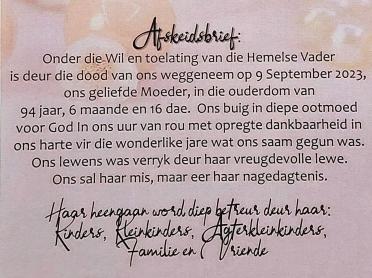 Afskeidsbrief:
Onder die Wil en toelating van die Hemelse Vader
is deur die dood van ons weggeneem op 9 September 2023,
ons geliefde Moeder, in die ouderdom van
94 jaar, 6 maande en 16 dae. Ons buig in diepe ootmoed
voor God In ons uur van rou met opregte dankbaarheid in
ons harte vir die wonderlike jare wat ons saam gegun was.
Ons lewens was verryk deur haar vreugdevolle lewe.
Ons sal haar mis, maar eer haar nagedagtenis.
Haar heengaan word diep betreur deur haar:
Kinders, Kleinkinders, Agterkleinkinders,
Familie en Vriende